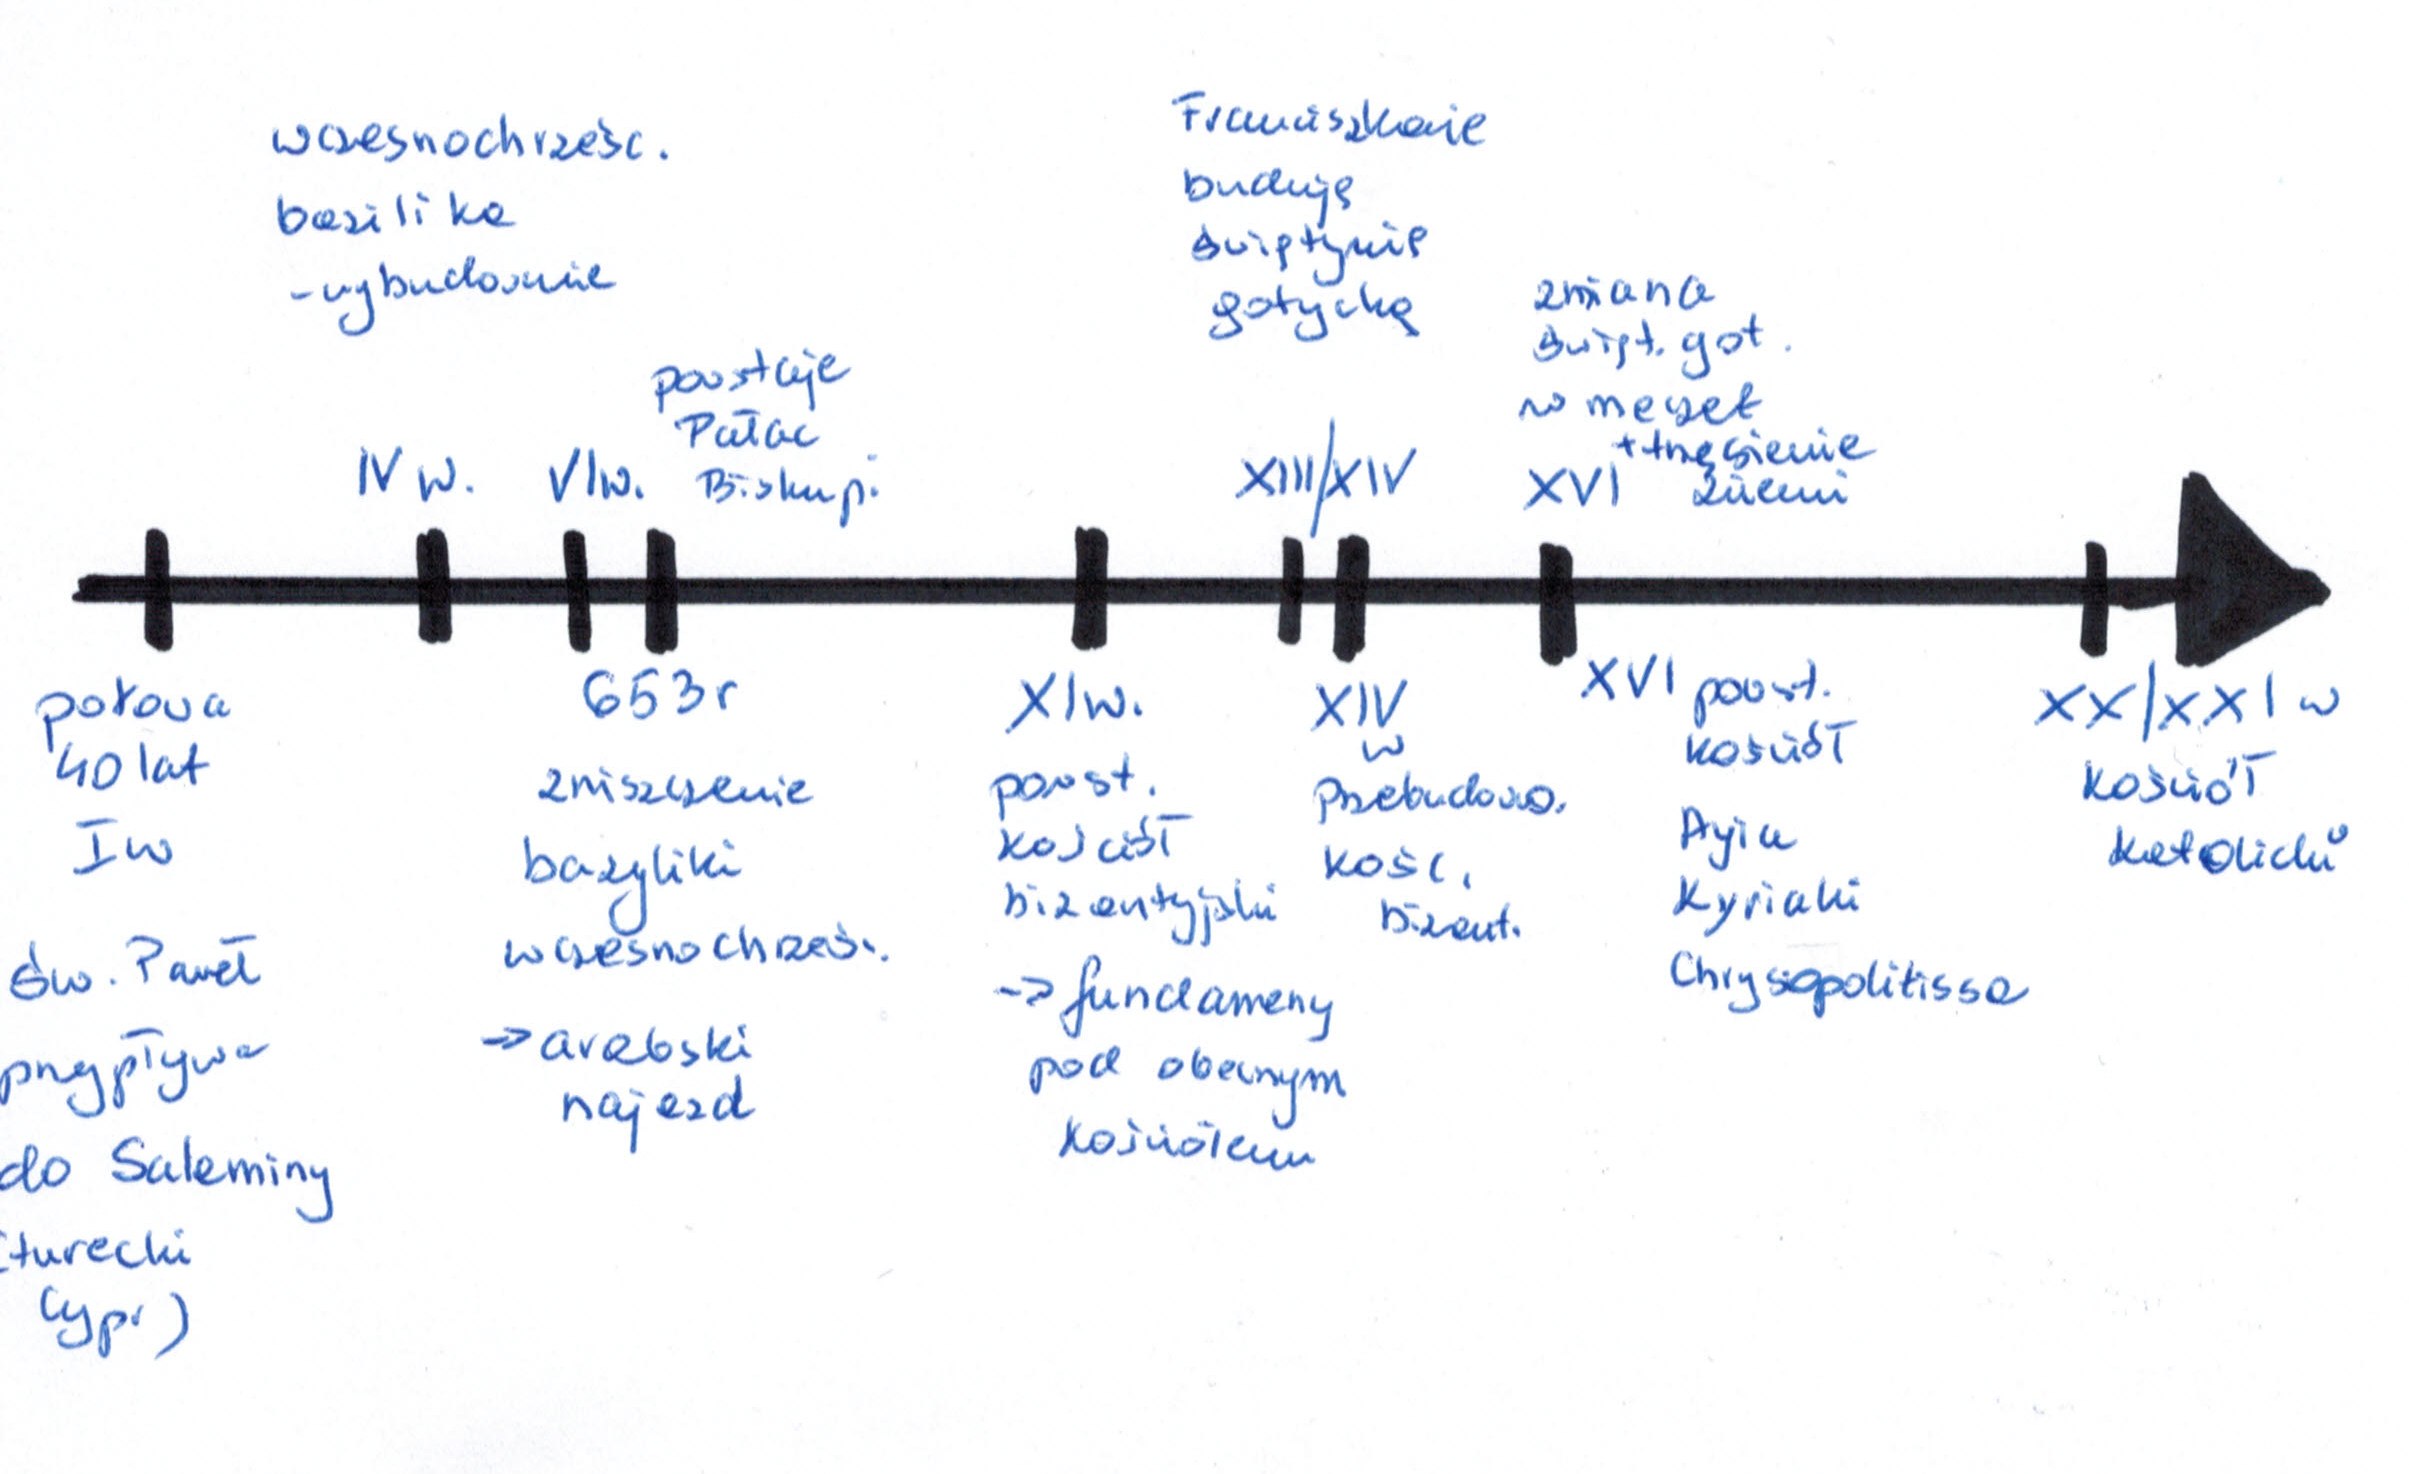 wczesnochrześc.
bazilika
- wybudowanie
powstaje
Pałac
Biskupi
IV w.
VI w.
Franciszkanie
budują
świątynię
gotycką
XIII/XIV
zmiana
świąt. got.
w meczet
+ trzęsienie
ziemi
XVI
połowa
40 lat
I w
św. Paweł
przypływa
do Salaminy
(turecki
Cypr)
653 r
zniszczenie
bazyliki
wczesnochrześ.
-> arabski
najazd
XI w.
powst.
kościół
bizantyjski
-> fundameny
pod obecnym
kościołem
XIV
w
Przebudowa.
kość.
bizant.
XVI powst.
kościół
Ayia
Kyriaki
Chrysopolitissa
XX/XXI w
kościół
katolicki